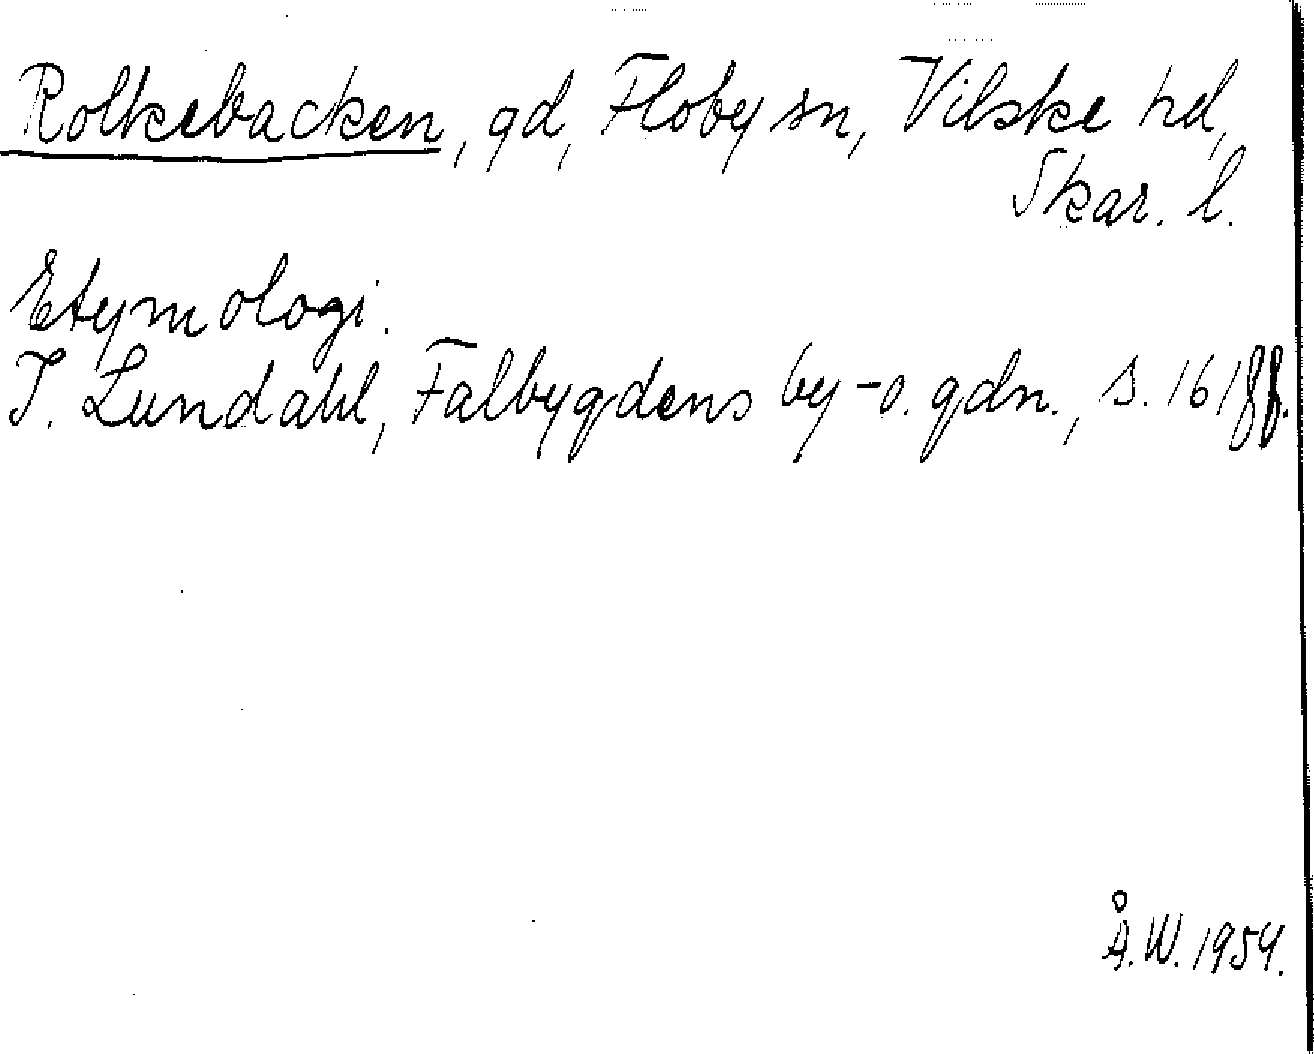 Rolkebacken, gd, Floby sn, Vilske hd,
Skar. l.
Etymologi.
I. Lundahl, Falbygdens by- o. gdn., s. 161 ff.
Å.W. 1954.